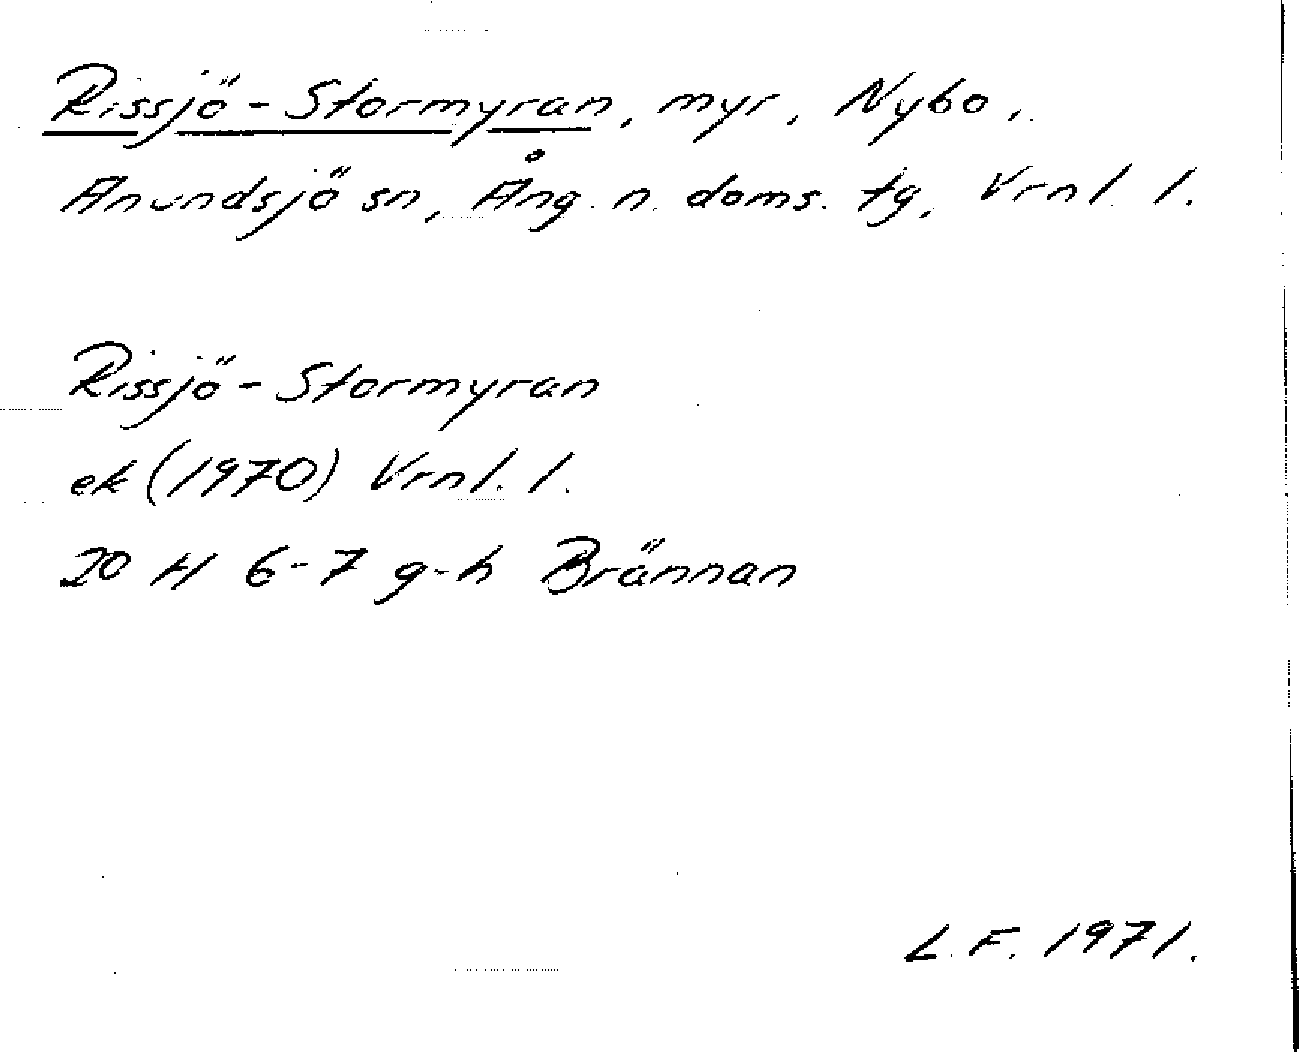 Rissjö-Stormyran, myr, Nybo,
Anundsjö sn, Ång. n. doms. tg, Vrnl. l.
Rissjö-Stormyran
ek (1970) Vrnl. l.
20 H 6-7 g-h Brännan
L.F. 1971.